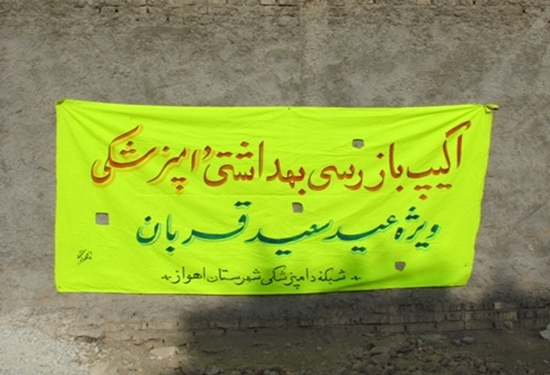 اکیپ بازرسی بهداشتی دامپزشکی
ویژه عید سعید قربان
شبکه دامپزشکی شهرستان اهواز